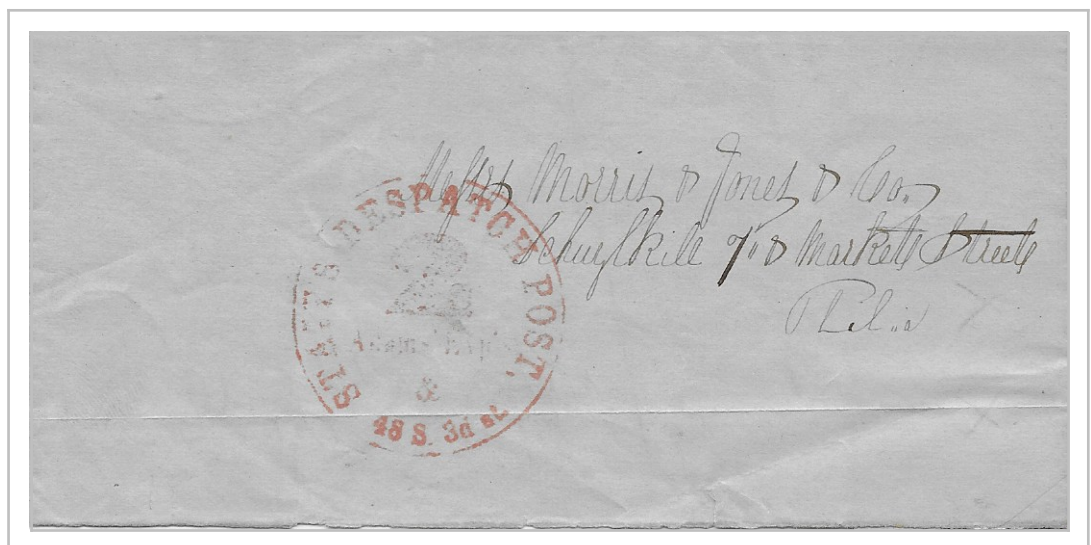 Messrs Morris & Jones & Co.
Schuylkill 7th & Markets Streets
Phila
STAIT'S DESPATCH POST,
2
&
48 S. 3d st